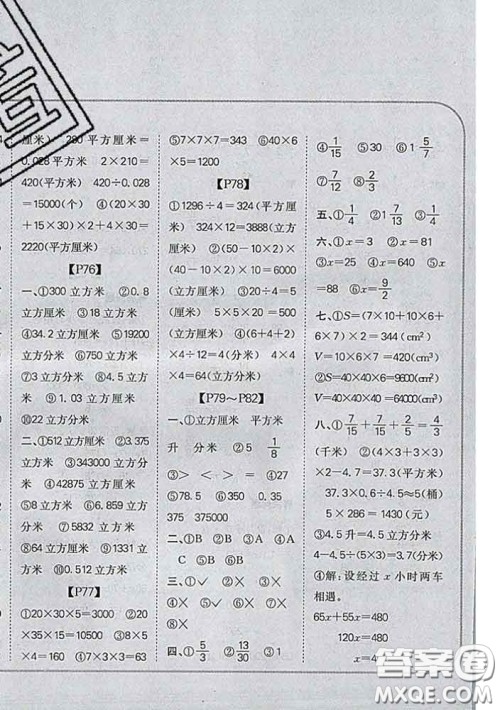 厘米) 280平方厘米=
0.028平方米 2×210=
420(平方米) 420÷0.028
=15000(个) ④(20×30
+15×30)×2+4×30=
2220(平方厘米)
【P76】
一、①300立方米 ②0.8
立方米 ③18立方米
④34.2立方米 ⑤19200
立方分米 ⑥750立方米
⑦3立方分米 ⑧4.5立
方米 ⑨1.03立方米
⑩22立方分米
二、①512立方厘米 ②375
立方米 ③343000立方
米 ④42875立方厘米
⑤8立方分米 ⑥6.859立
方分米 ⑦5832立方米
⑧64立方分米 ⑨1331立
方米 ⑩0.512立方米
【P77】
①20×30×5=3000 ②20
×35×15=10500 ③8×5
×4=160 ④7×3×3=63
⑤7×7×7=343 ⑥40×6
×5=1200
【P78】
①1296÷4=324(平方厘
米) 324×12=3888(立方
厘米) ②(50-10×2)×
(40-10×2)×10=6000
(立方厘米) ③20÷4=5
(厘米) 5×5×20=500
(立方厘米) ④(6+4+2)
×4÷12=4(分米) 4×4
×4=64(立方分米)
【P79~P82】
一、①立方厘米 平方米
升 分米 ②5 1/8
③> < > = ④27
⑤78.5 ⑥350 0.35
375 375000
二、①B ②B ③A ④A
C ⑤B ⑥B
三、①✓ ②× ③✓
④× ⑤× ⑥× ⑦×
⑧✓
四、①5/3 ②13/30 ③2/1
④1/15 ⑤30 ⑥1 5/7
⑦7/12 ⑧2/3
五、①1/4 ②7/13 ③1/4
六、①x=3 ②x=32
③x=25 ④x=64 ⑤x
=88 ⑥x=9/2
七、①S=(7×10+10×6+
6×7)×2=344(cm²)
V=10×7×6=420(cm³)
②S=40×40×6=9600(cm²)
V=40×40×40=64000(cm³)
八、①7/15+7/15+2/5=4/3
(千米) ②(4×3+3×3)
×2-4.7=37.3(平方米)
37.3×0.6÷4.5≈5(桶)
5×286=1430(元)
③4.5升=4.5立方分米
4.5÷(5×3)=0.3(分米)
④解:设经过x小时两车
相遇。
65x+55x=480
120x=480
答案卷
MXQE.COM